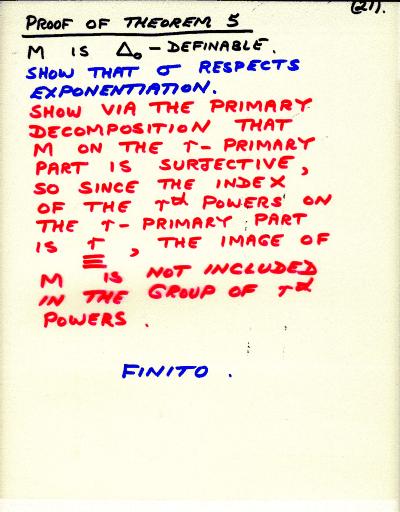 (21).
PROOF OF THEOREM 5
M IS Δ₀ - DEFINABLE.
SHOW THAT σ RESPECTS
EXPONENTIATION.
SHOW VIA THE PRIMARY
DECOMPOSITION THAT
M ON THE r- PRIMARY
PART IS SURJECTIVE,
SO SINCE THE INDEX
OF THE rᵗʰ POWERS ON
THE r- PRIMARY PART
IS r, THE IMAGE OF
M IS NOT INCLUDED
IN THE GROUP OF rᵗʰ
POWERS.
FINITO.